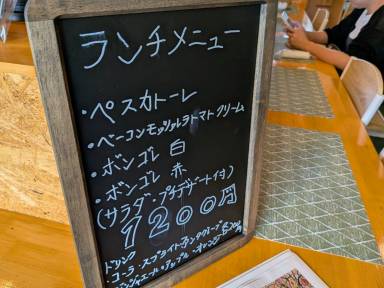 ランチメニュー
・ペスカトーレ
・ベーコンモッツァレラトマトクリーム
・ボンゴレ 白
・ボンゴレ 赤
(サラダ・プチデザート付)
1200円
ドリンク
・コーラ・スプライト
・ジンジャエール・アップル・オレンジ